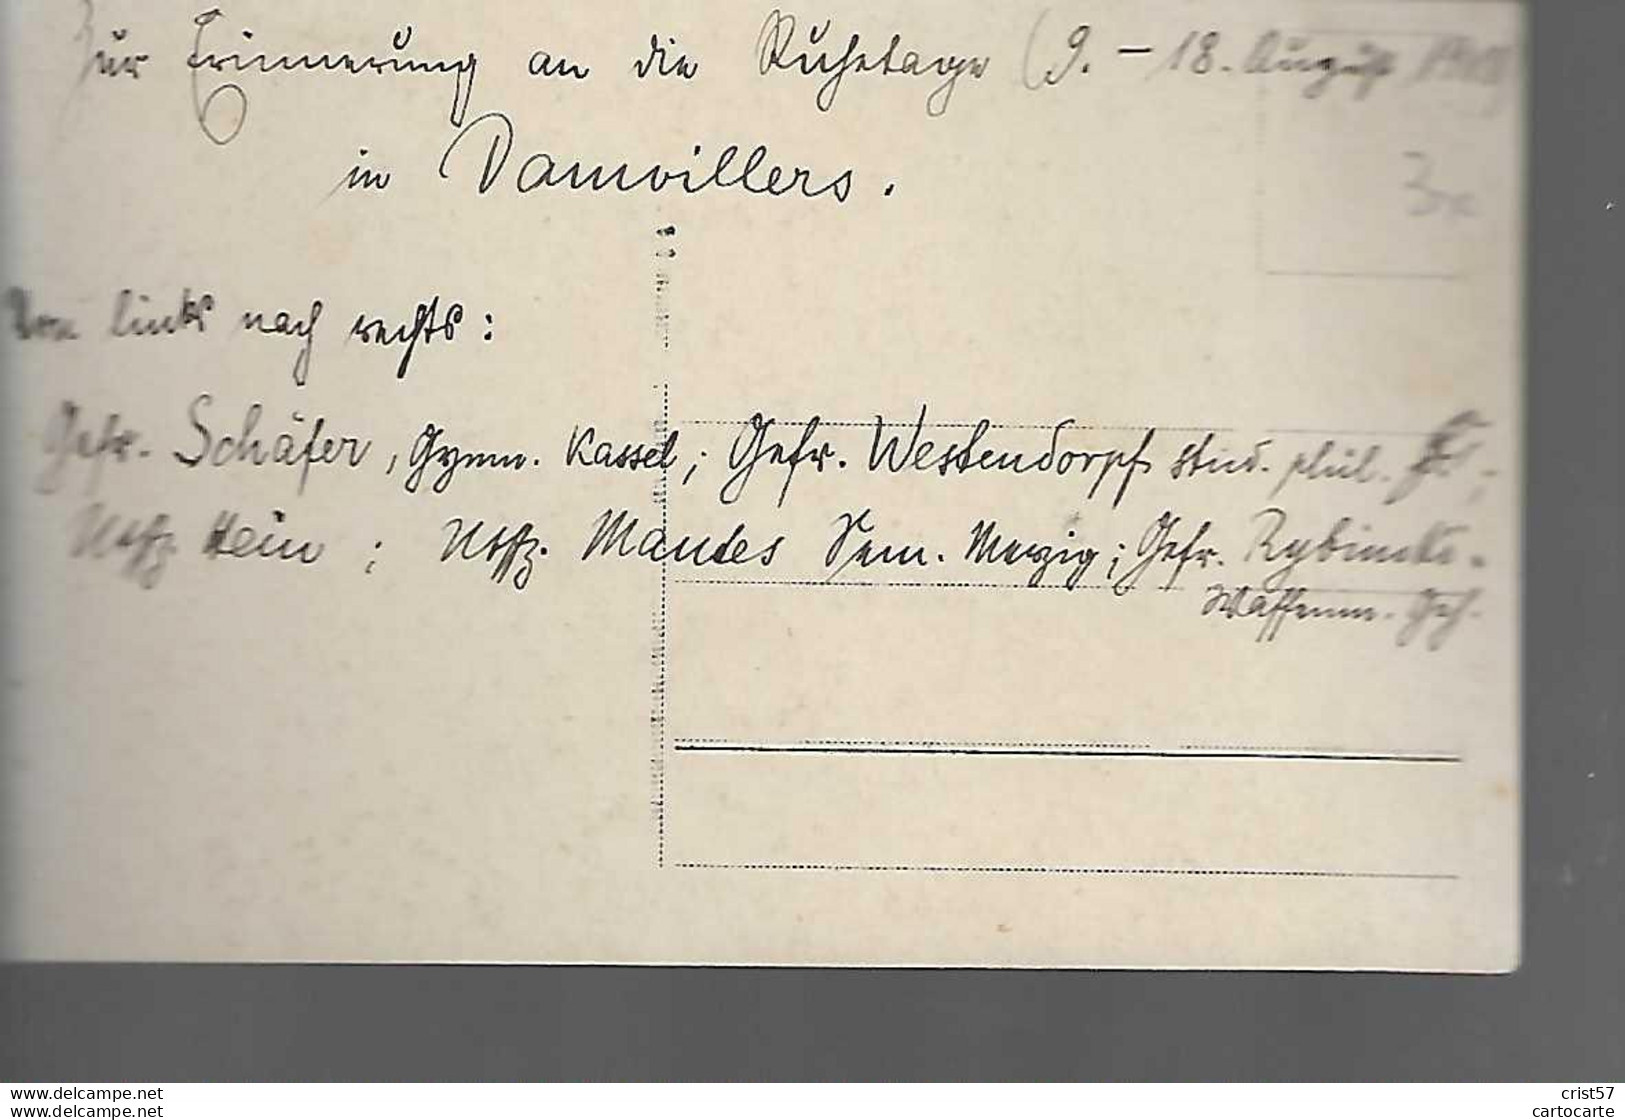 Zur Erinnerung an die Ruhetage (9. – 18. August
in Damvillers.
3
Von links nach rechts:
Gefr. Schäfer, Gymn. Kassel; Gefr. Westendorpf stud. phil.
Uoffz. Hein; Uoffz. Mandes Sem. Merzig; Gefr.
Waffenm. Geh.
www.delcampe.net
www.delcampe.net
crist57
cartocarte